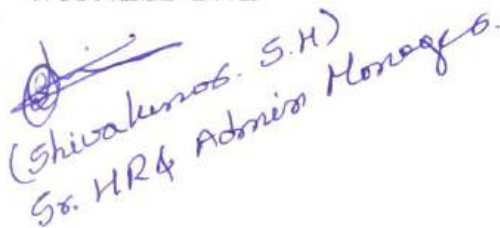 (Shivakumar. S.H)
Sr. HR & Admin Manager.